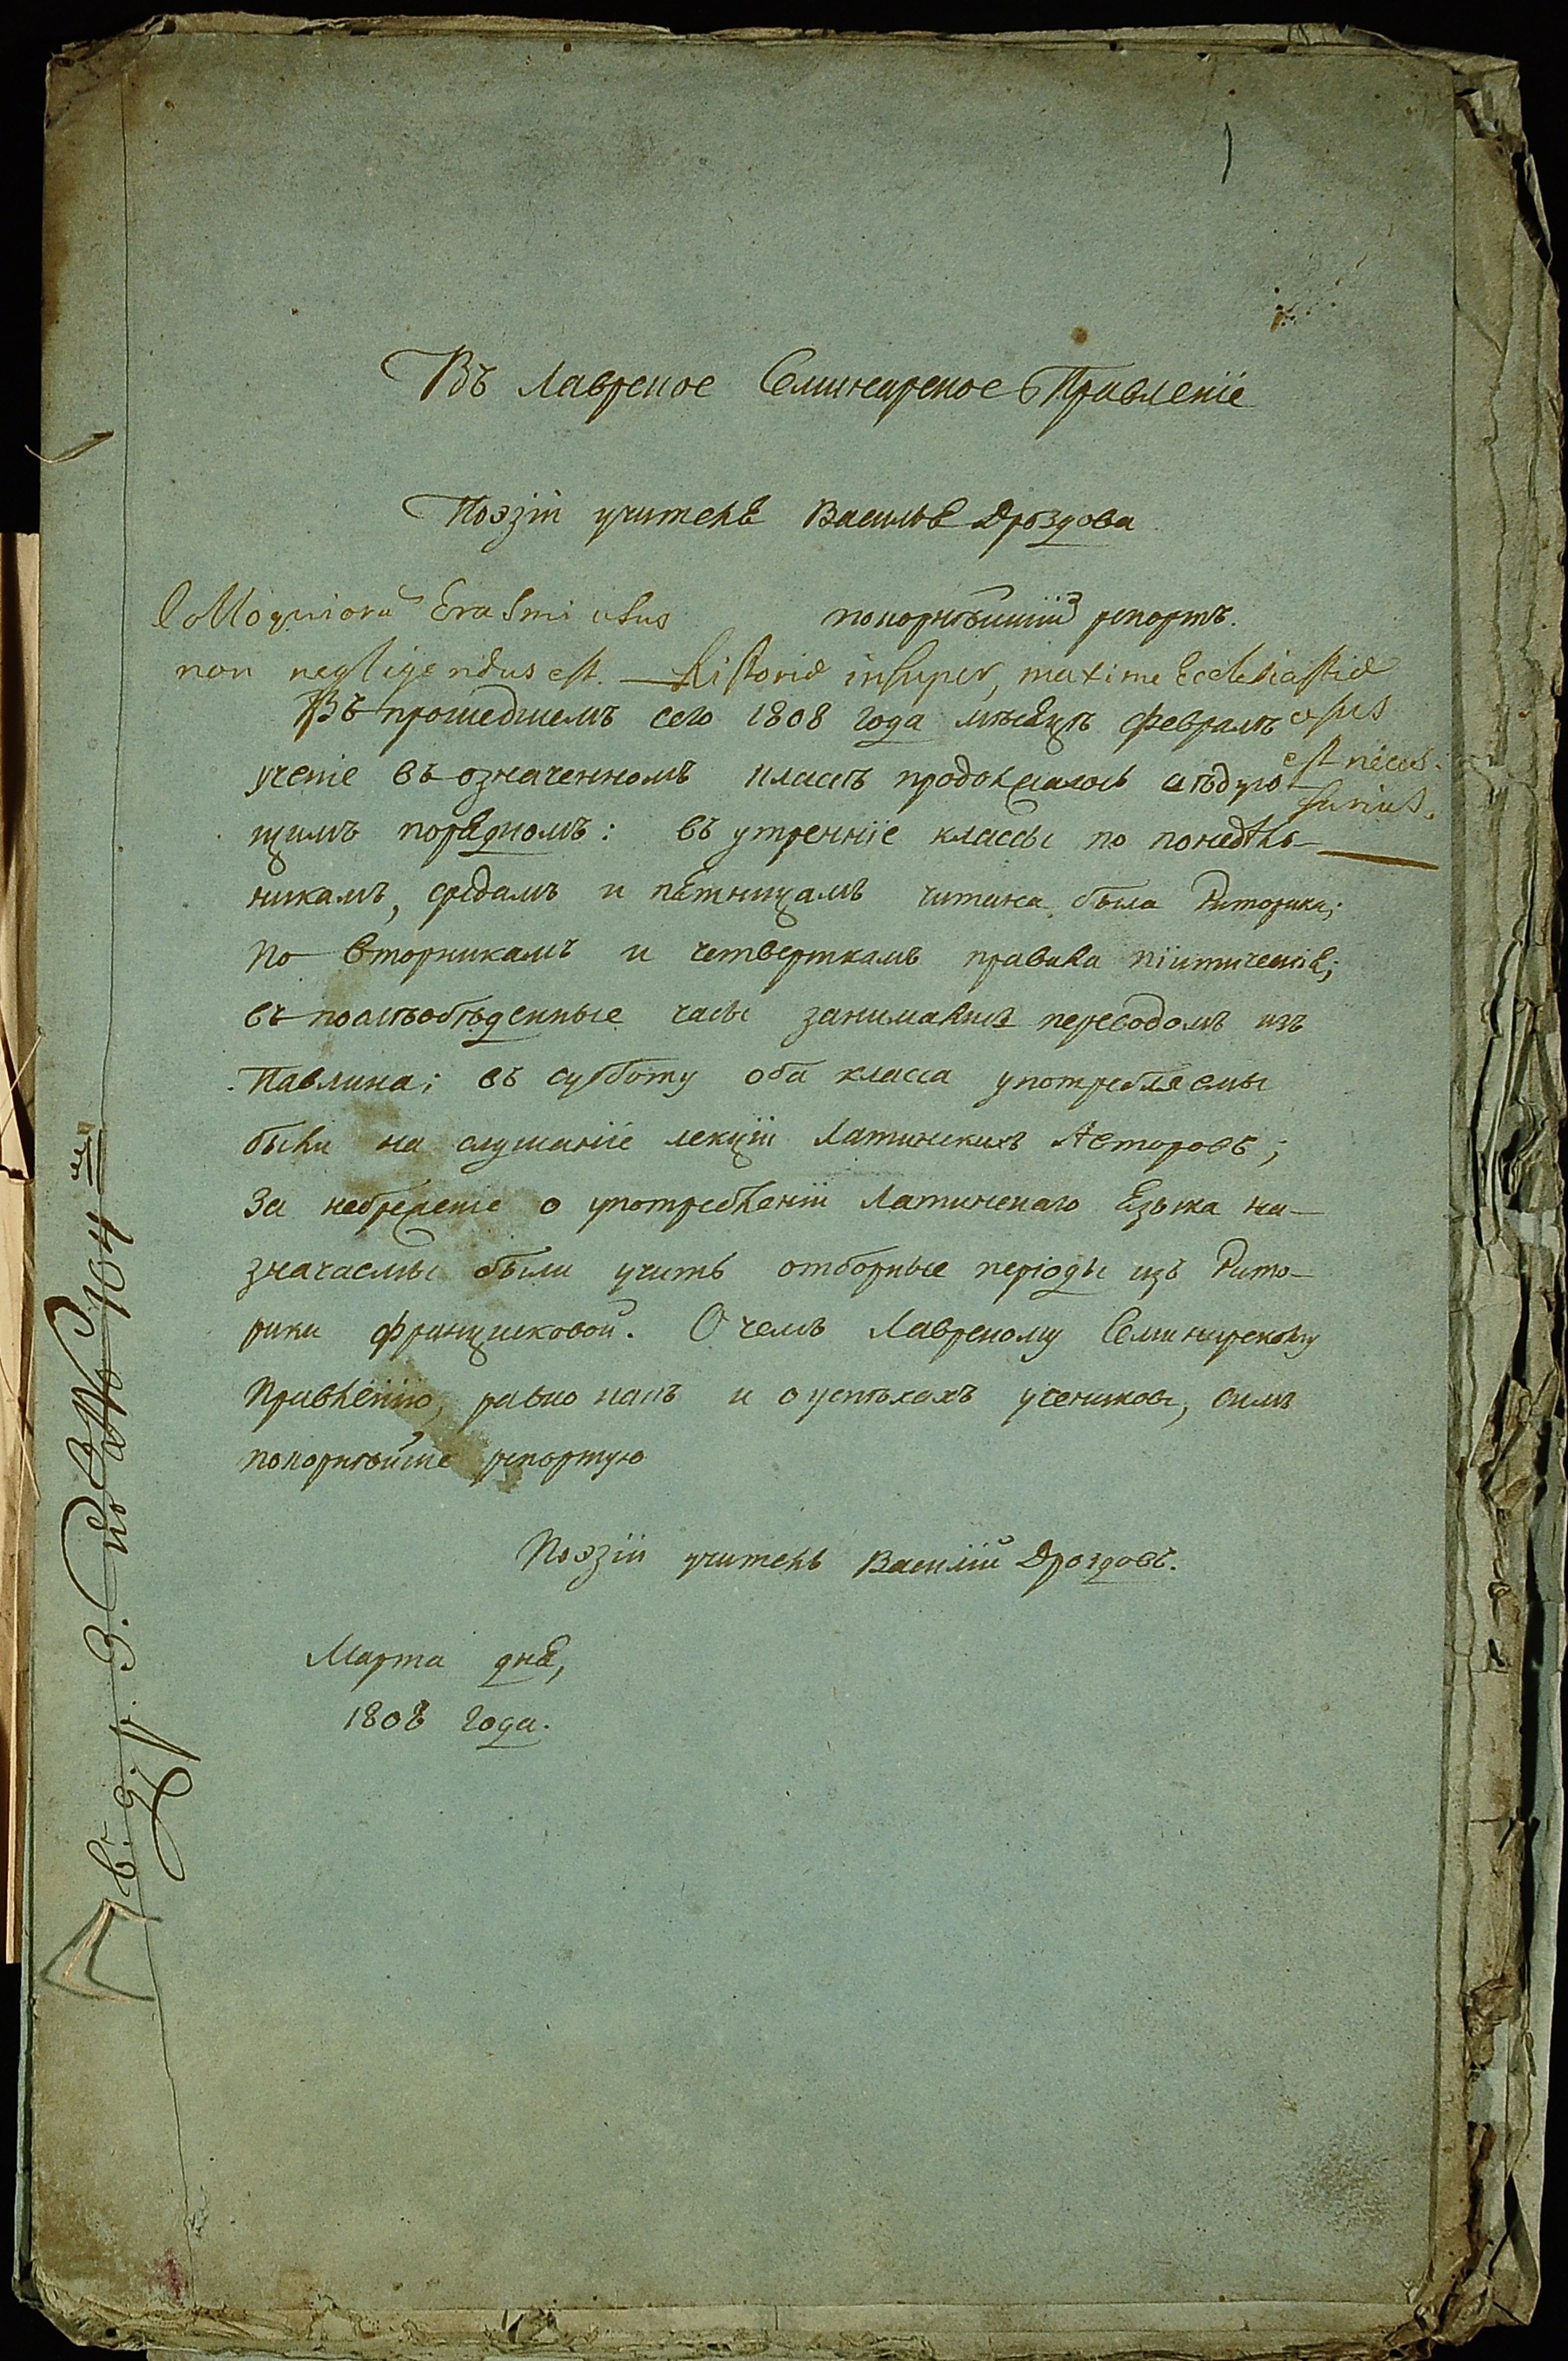 1
Въ Лаврское Семинарское Правленіе
Поэзіи учителя Василья Дроздова
Colloquiorū Erasmi usus
покорнѣйшій репортъ.
non negligendus est. — Historiæ insuper, maxime Ecclesiasticæ usus
est neces-
sarius.
Въ прошедшемъ сего 1808 года мѣсяцѣ Февралѣ
ученіе въ означенномъ классѣ продолжалось слѣдую
щимъ порядкомъ: въ утренніе классы по понедѣль-
никамъ, средамъ и пятницамъ читана была Риторика;
по вторникамъ и четверткамъ правила піитическія;
въ послѣобѣденные часы занимались переводомъ изъ
Павлина; въ субботу оба класса употребляемы
были на слушаніе лекціи Латинскихъ Авторовъ;
За небреженіе о употребленіи Латинскаго Языка на-
значаемы были учить отборные періоды изъ Рито-
рики Францисковой. О чемъ Лаврскому Семинарскому
Правленію, равно какъ и о успѣхахъ учениковъ, симъ
покорнѣйше репортую
Поэзіи учитель Василій Дроздовъ.
Марта дня,
1808 года.